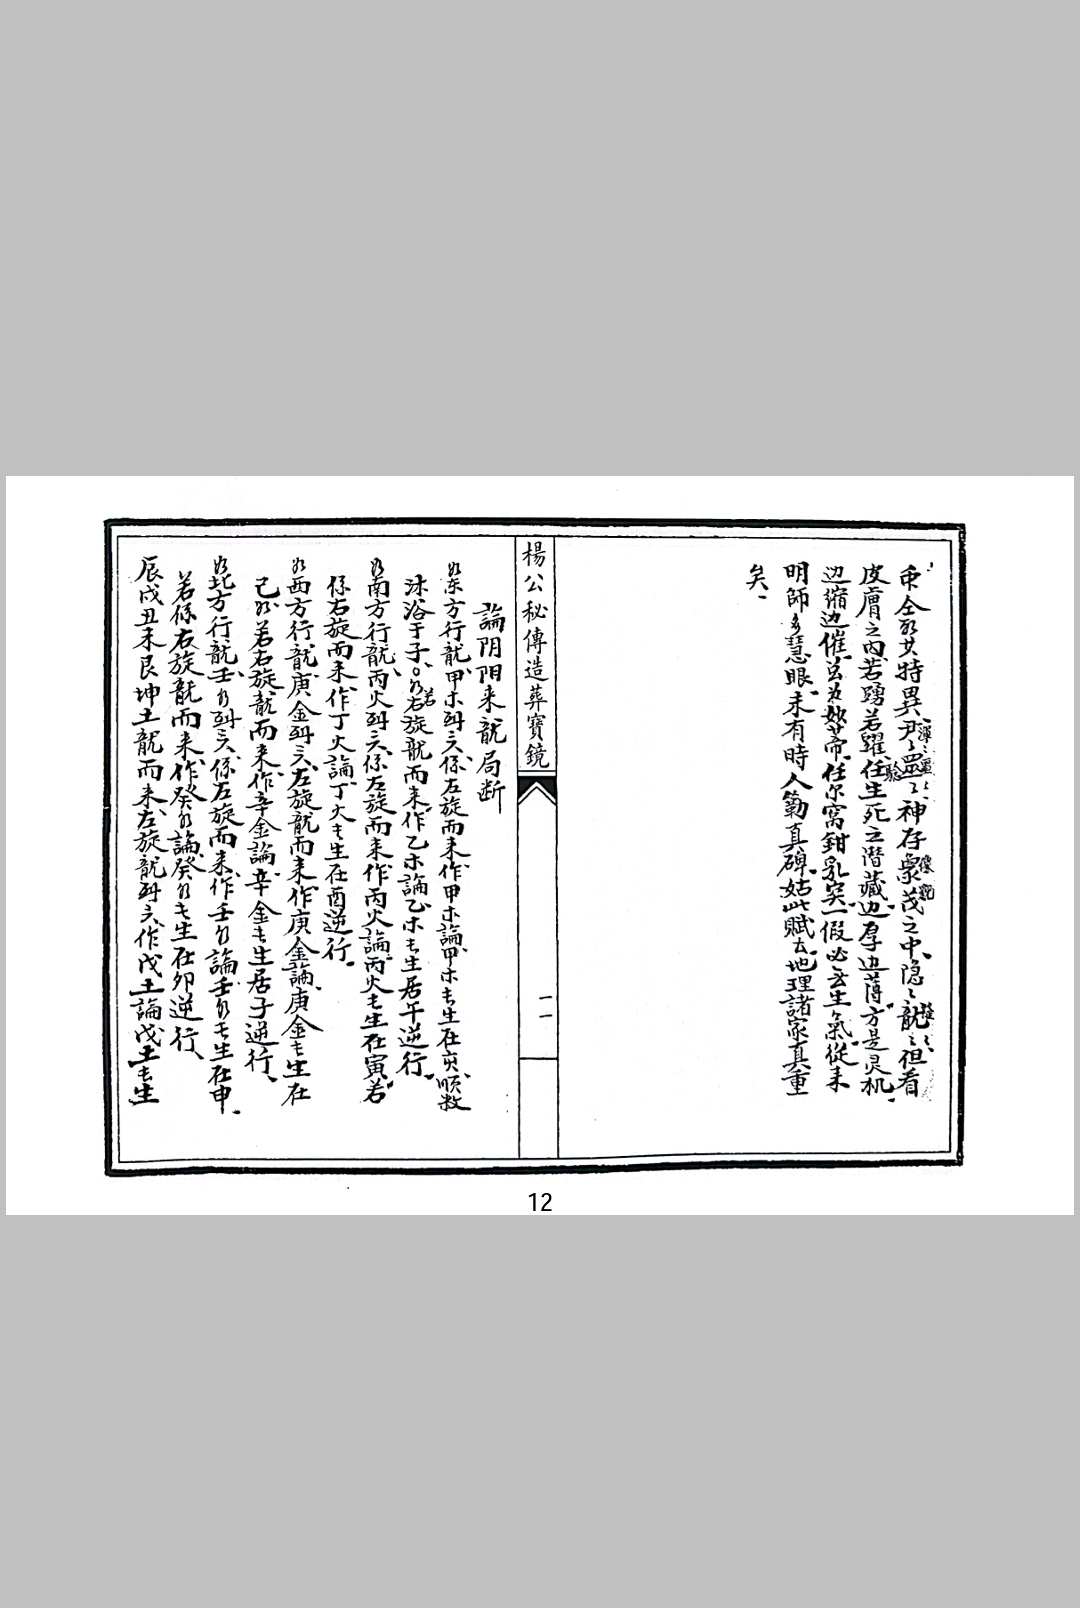 全 其特異 神存 茂之中隐 龍 但看
皮膚之內若踴若躍任生死之潜藏边厚边薄方是灵机
边缩边催 任尔窩鉗乳突一假必 生氣從来
明師多慧眼未有時人 真碑姑此賦 地理諸家真重
矣
楊公秘傳造葬寶鏡
一一
論阴阴来龍局断
如东方行龍甲木 係左旋而来作甲木論甲木 生在亥順数
沐浴于子 若右旋龍而来作乙木論乙木 生居午逆行
如南方行龍丙火 係左旋而来作丙火論丙火 生在寅若
係右旋而来作丁火論丁火 生在酉逆行
如西方行龍庚金 左旋龍而来作庚金論庚金 生在
己 若右旋龍而来作辛金論辛金 生居子逆行
如北方行龍壬 係左旋而来作壬 論壬 生在申
若係右旋龍而来作癸 論癸 生在卯逆行
辰戌丑未艮坤土龍而来左旋龍 作戊土論戊土 生
12